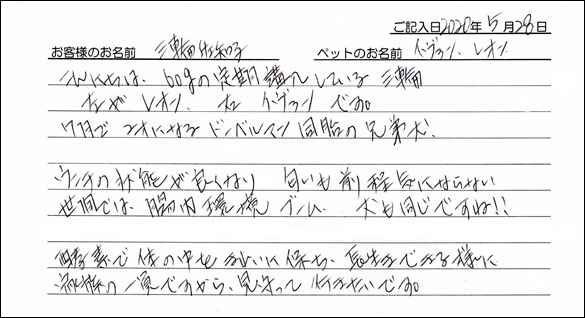 ご記入日2020年5月28日
お客様のお名前 三輪佐知子 ペットのお名前 イヴァン、レオン
こんにちは、60gの定期購入している三輪
左がレオン、右イヴァンです。
7月で2才になるドーベルマン同胎の兄弟犬。
ウンチの状態が良くなり 匂いも前程気にならない
世間では、腸内環境ブーム、犬も同じですね!!
酵素で体の中をきれいに保ち、長生きできる様に
家族の一員ですから、見守って行きたいです。